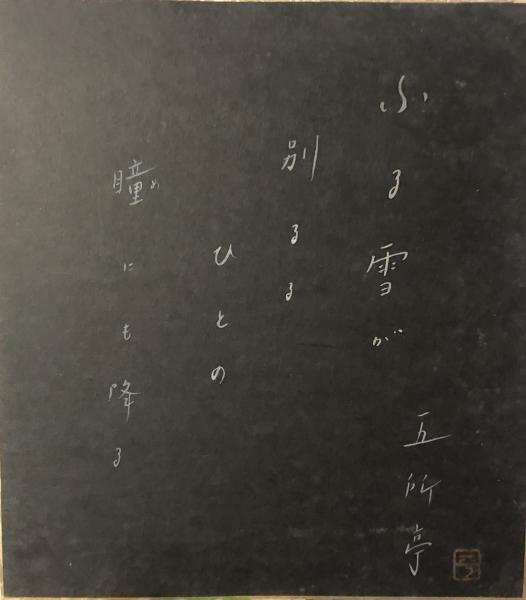 ふる雪が
別るる
ひとの
瞳にも降る
め
五所亭